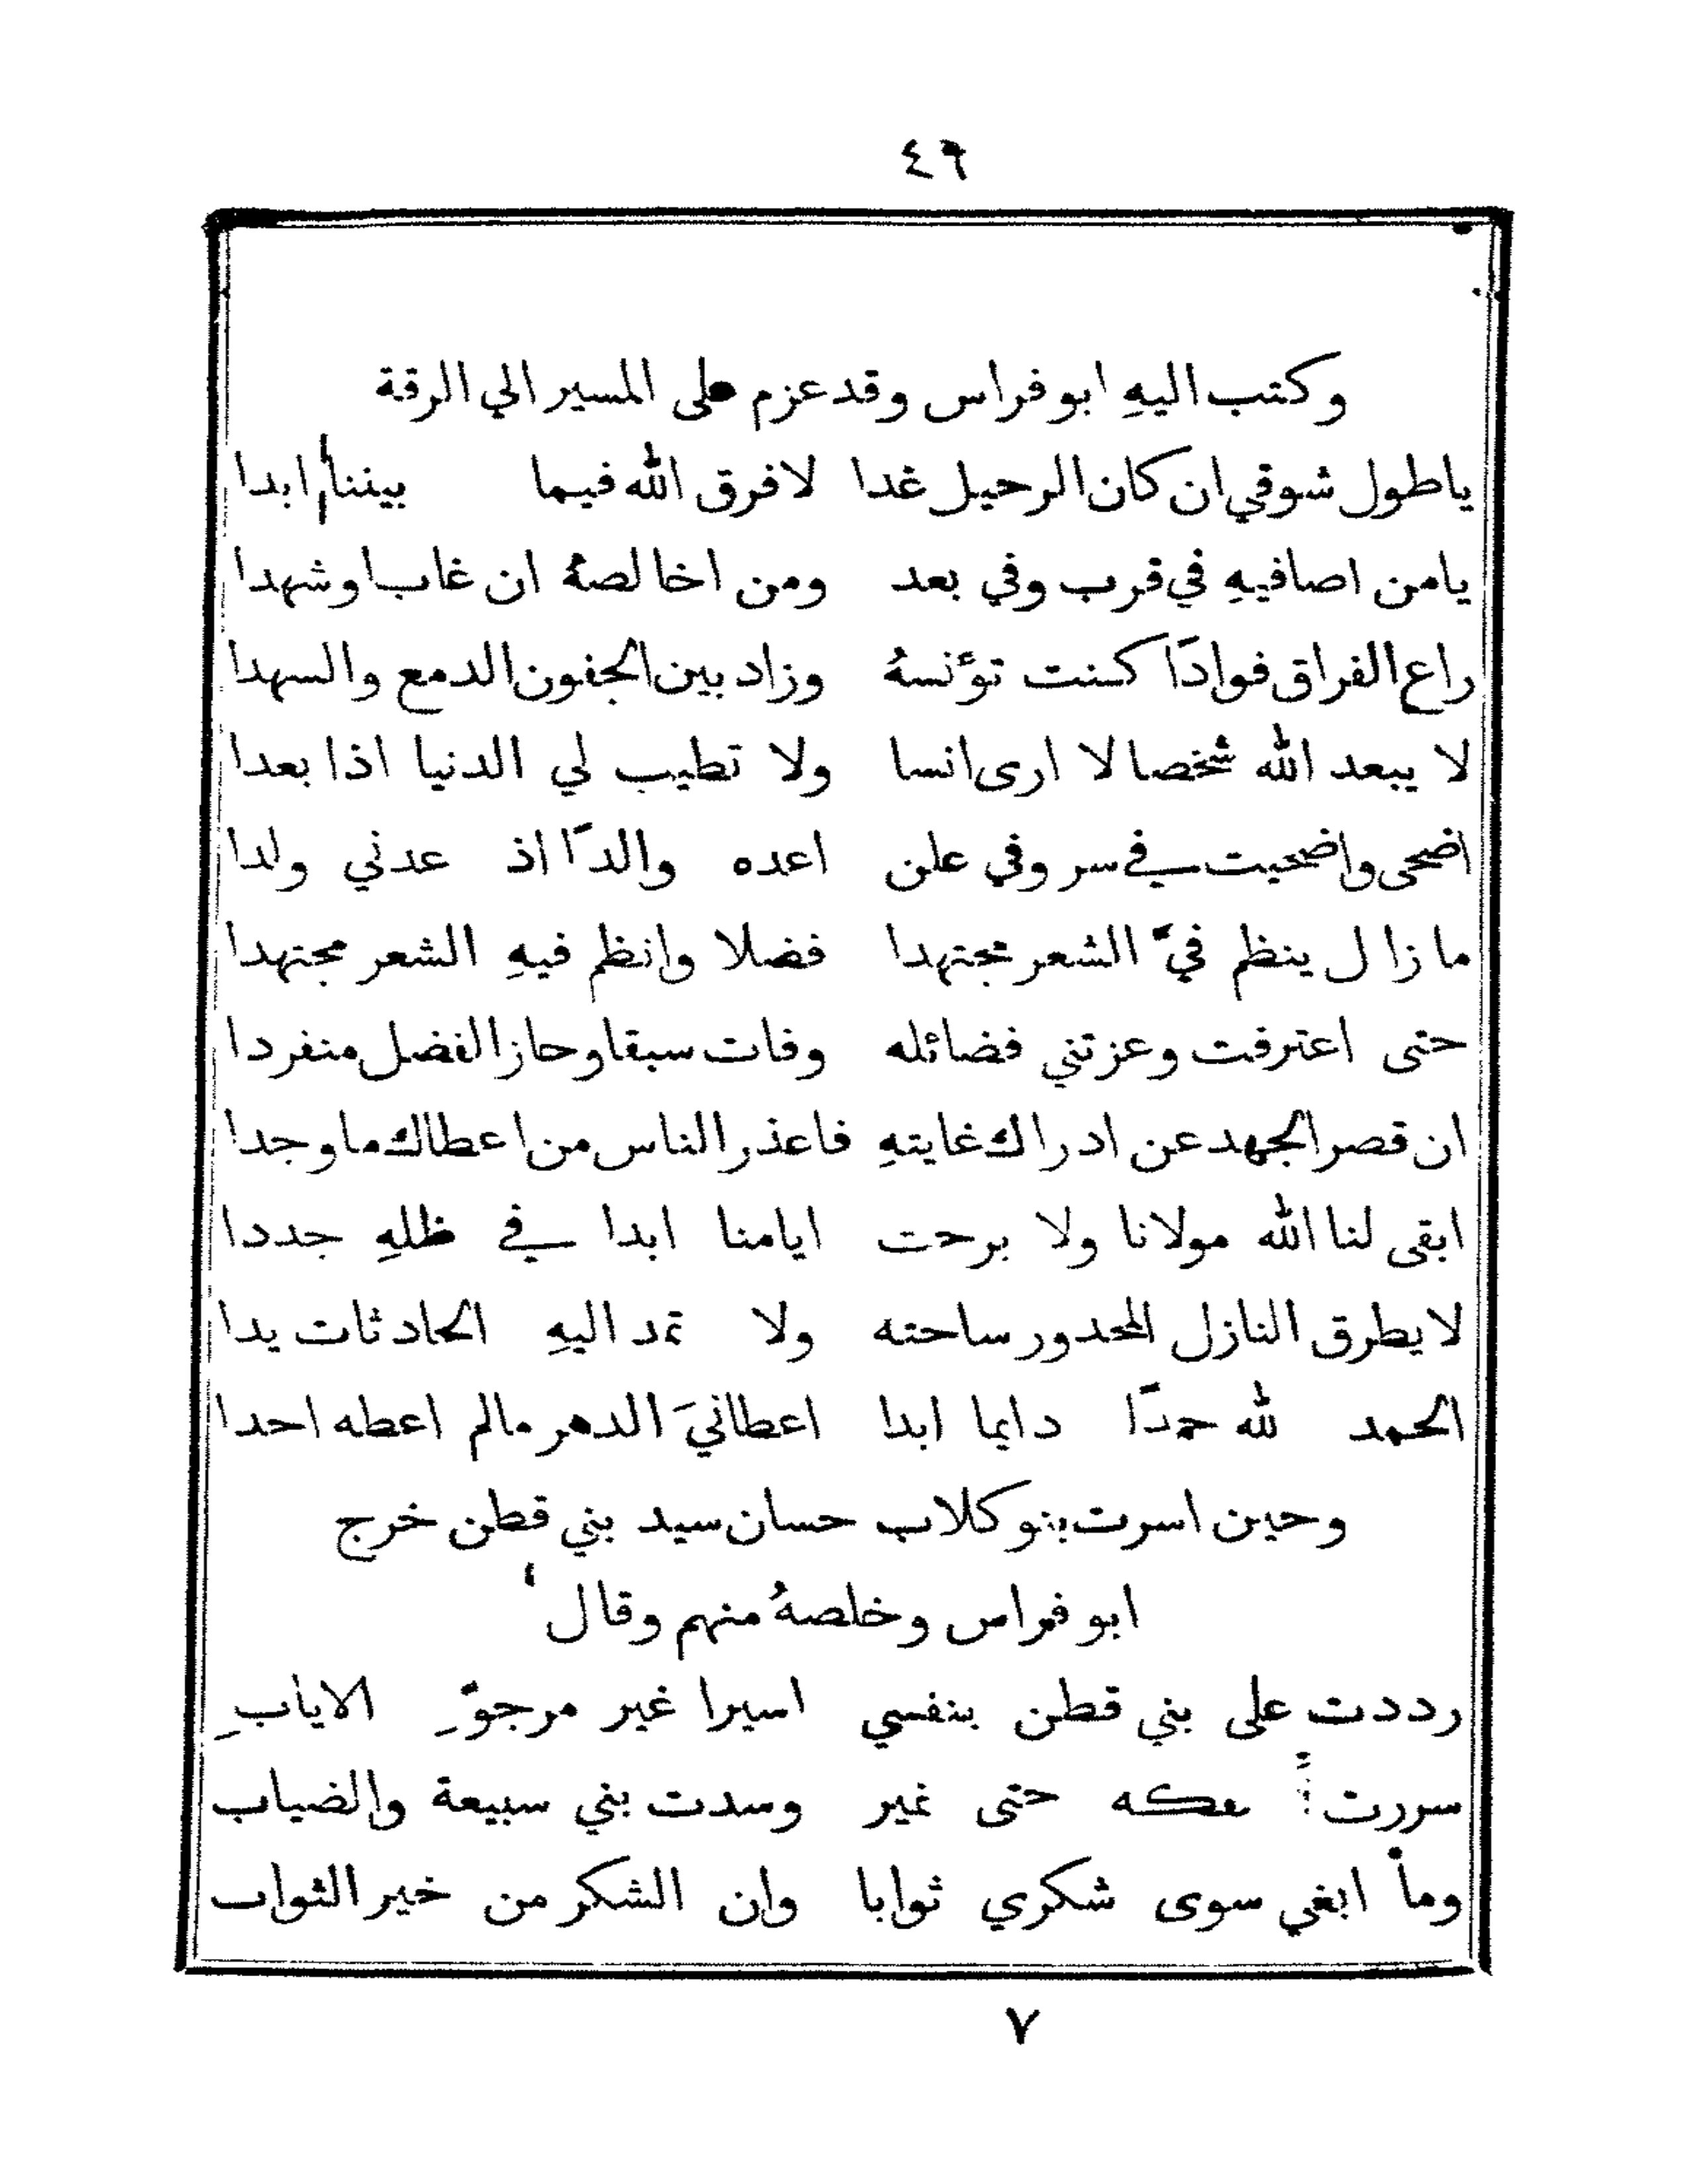 ٤٩
وكتب اليهِ ابو فراس وقد عزم على المسير الي الرقة
ياطول شوقي ان كان الرحيل غدا لا فرق الله فيما بيننا ابدا
يامن اصافيهِ في قرب وفي بعد ومن اخالصهُ ان غاب اوشهدا
راع الفراق فوادًا كنت تؤنسهُ وزاد بين الجفون الدمع والسهدا
لا يبعد الله شخصا لا ارى انسا ولا تطيب لي الدنيا اذا بعدا
اضحى واضحيت في سر وفي علن اعده والدًا اذ عدني ولدا
ما زال ينظم فيَّ الشعر مجتهدا فضلا وانظم فيهِ الشعر مجتهدا
حتى اعترفت وعزتني فضائله وفات سبقا وحاز الفضل منفردا
ان قصر الجهد عن ادراك غايتهِ فاعذر الناس من اعطاك ما وجدا
ابقى لنا الله مولانا ولا برحت ايامنا ابدا في ظلهِ جددا
لا يطرق النازل المحدور ساحته ولا تمد اليهِ الحادثات يدا
الحمد لله حمدًا دايما ابدا اعطانيَ الدهر مالم اعطه احدا
وحين اسرت بنو كلاب حسان سيد بني قطن خرج
ابو فراس وخلصهُ منهم وقال
رددت على بني قطن بنفسي اسيرا غير مرجوِّ الايابِ
سررت حتى نمير وسدت بني سبيعة والضباب
وما ابغي سوى شكري ثوابا وان الشكر من خير الثواب
٧